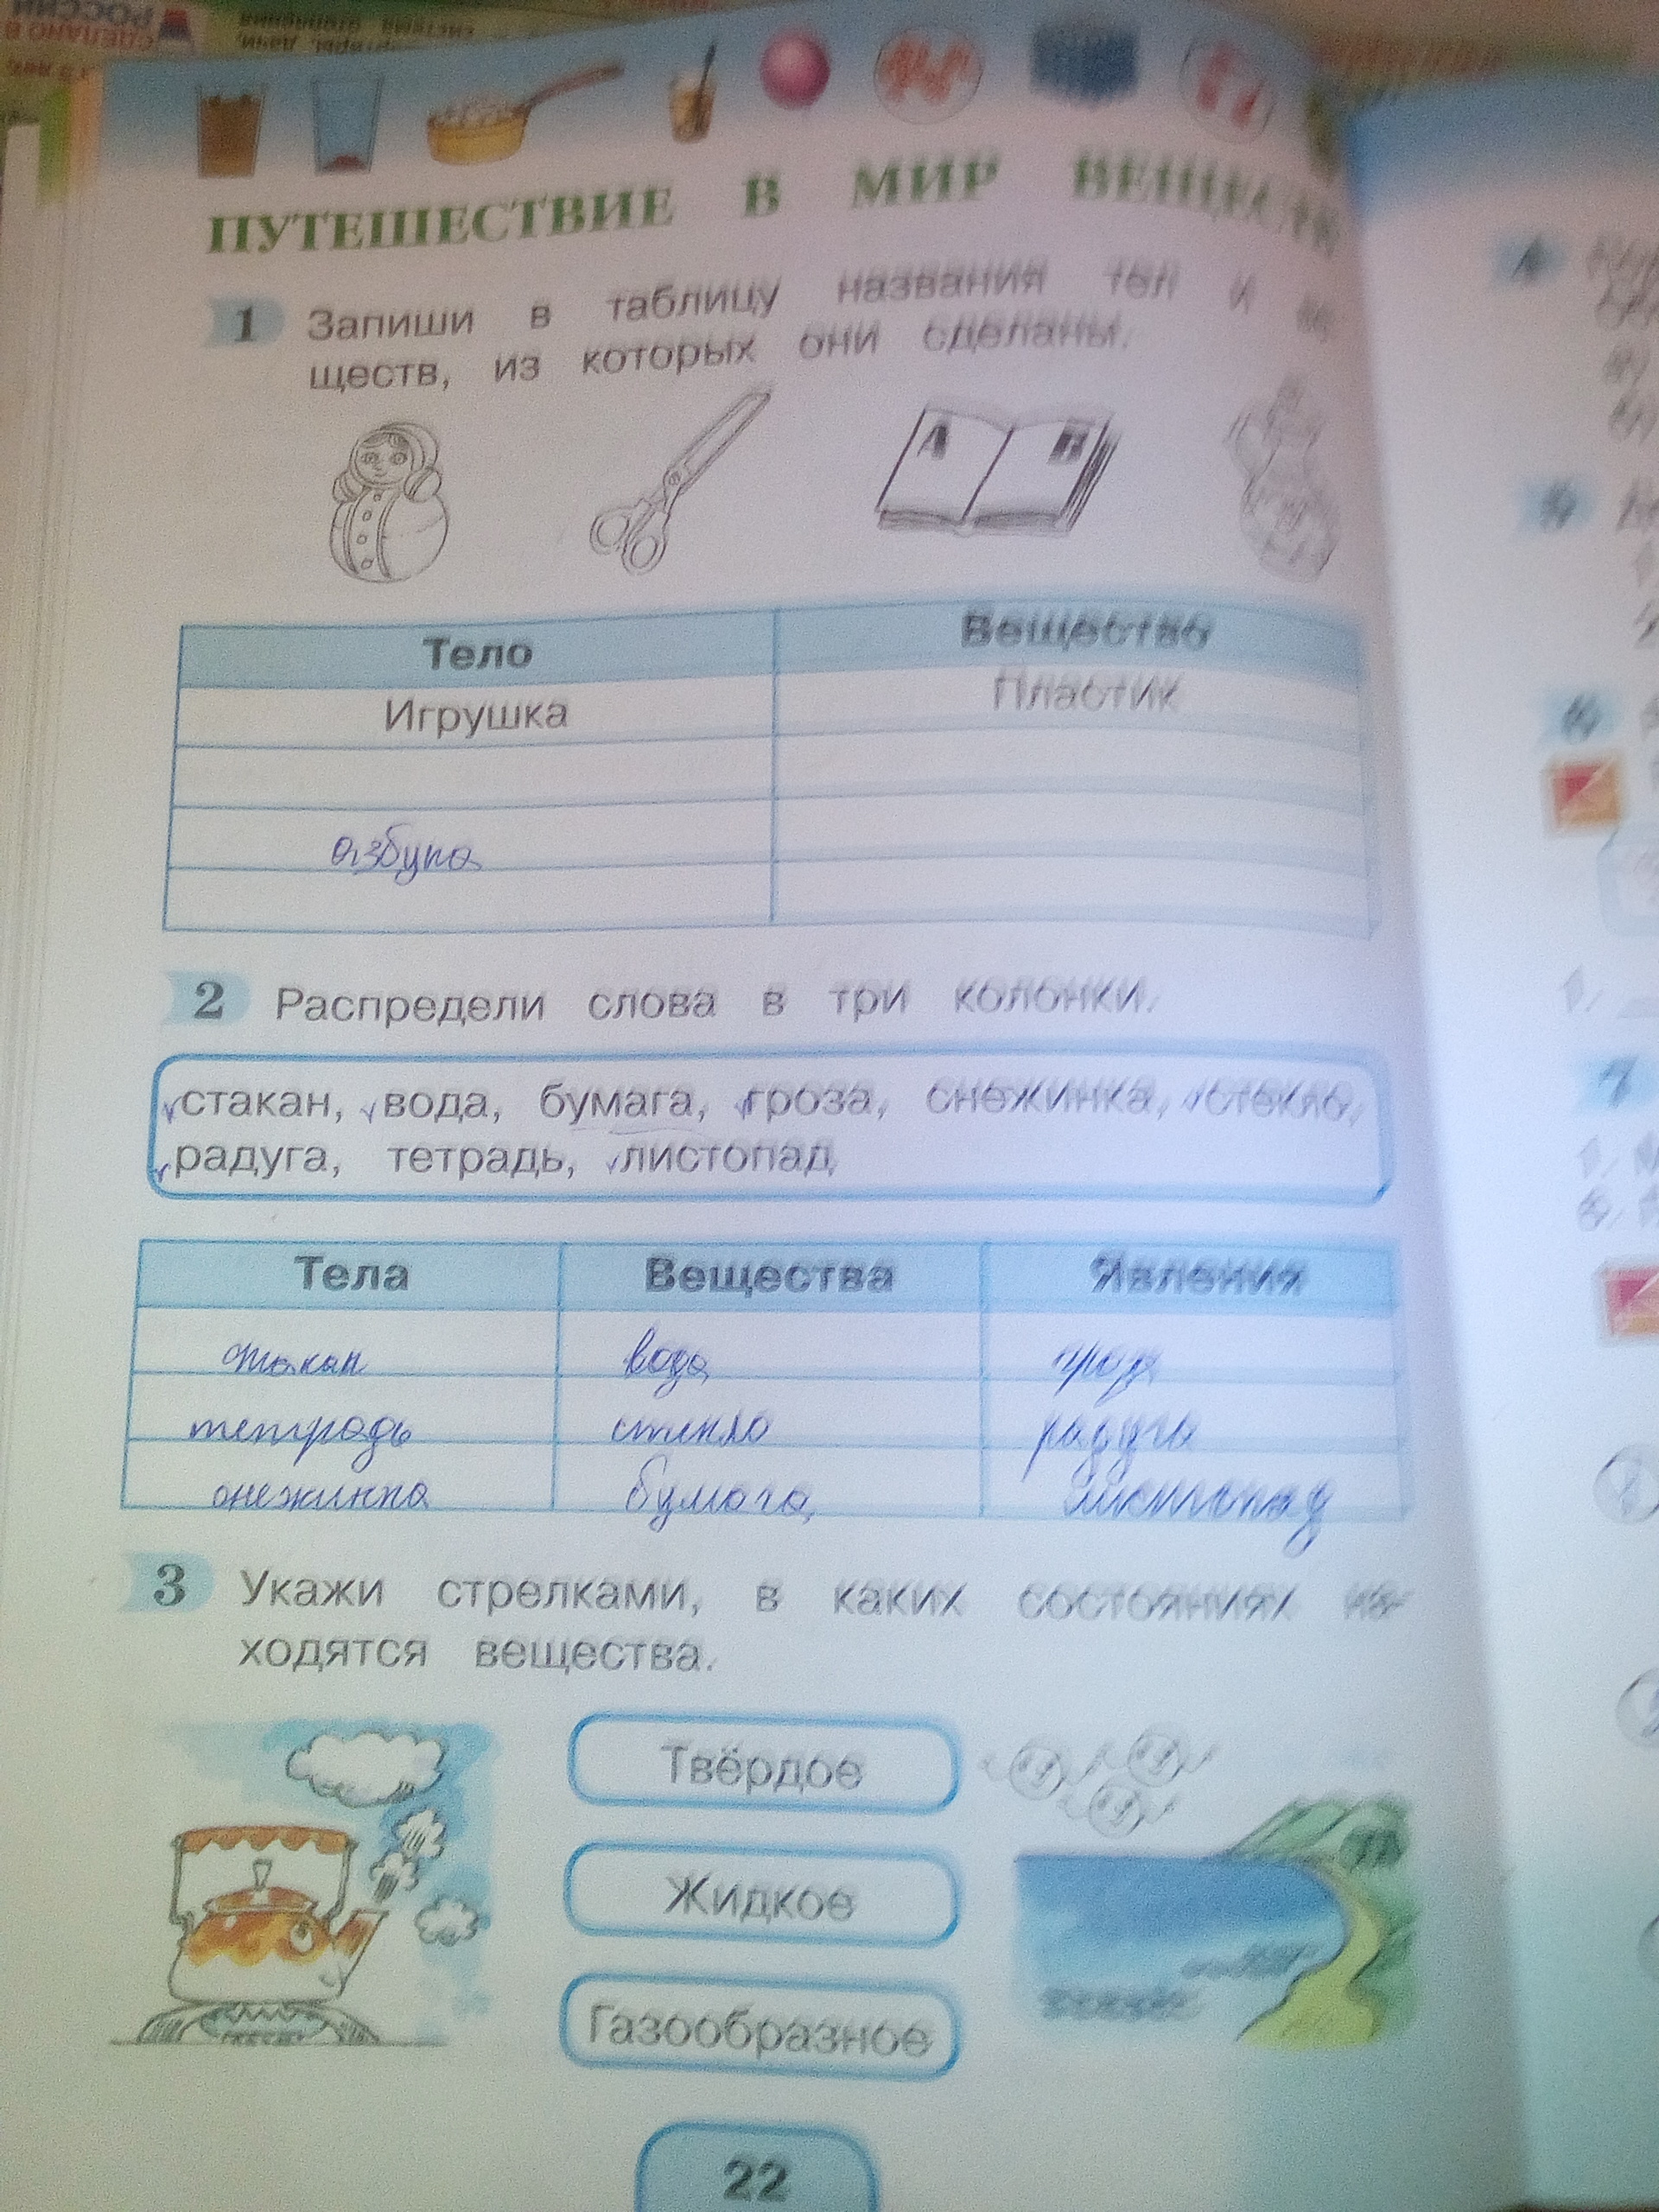 СДЕЛАНО В
РОССИИ
ПУТЕШЕСТВИЕ В МИР ВЕЩЕСТВ
1 Запиши в таблицу названия тел и ве-
ществ, из которых они сделаны.
А Б
Тело Вещество
Игрушка Пластик
азбука
2 Распредели слова в три колонки.
стакан, вода, бумага, гроза, снежинка, стекло,
радуга, тетрадь, листопад
Тела Вещества Явления
стакан вода гроза
тетрадь стекло радуга
снежинка бумага листопад
3 Укажи стрелками, в каких состояниях на-
ходятся вещества.
Твёрдое
Жидкое
Газообразное
22